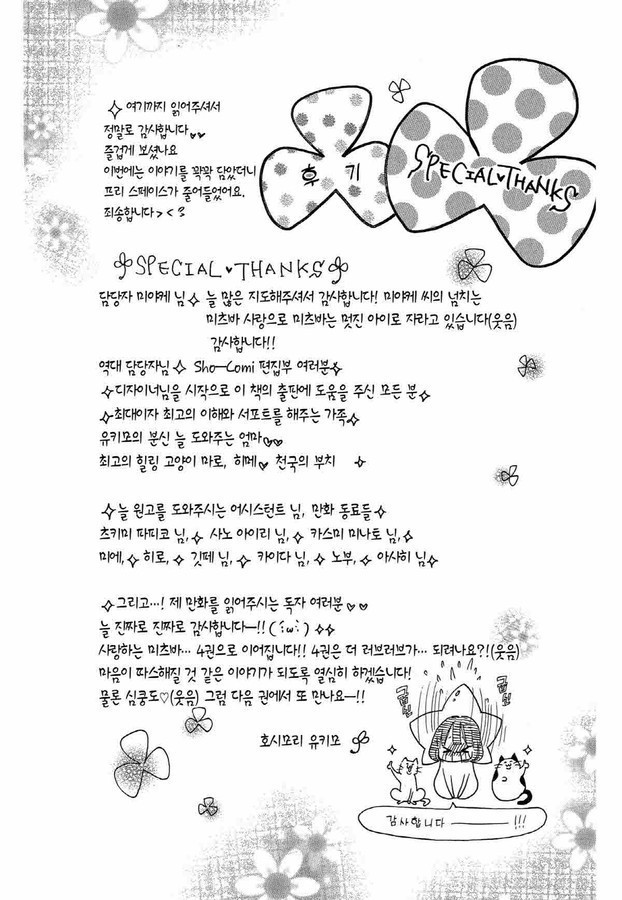 ✧여기까지 읽어주셔서
정말로 감사합니다♥♥
즐겁게 보셨나요
이번에는 이야기를 꽉꽉 담았더니
프리 스페이스가 줄어들었어요.
죄송합니다><3
후기
SPECIAL♥THANKS
SPECIAL♥THANKS
담당자 미야케 님✧ 늘 많은 지도해주셔서 감사합니다! 미야케 씨의 넘치는
미츠바 사랑으로 미츠바는 멋진 아이로 자라고 있습니다(웃음)
감사합니다!!
역대 담당자님✧ Sho-Comi 편집부 여러분✧
✧디자이너님을 시작으로 이 책의 출판에 도움을 주신 모든 분✧
✧최대이자 최고의 이해와 서포트를 해주는 가족✧
유키모의 분신 늘 도와주는 엄마♥♥
최고의 힐링 고양이 마로, 히메♥ 천국의 부치 ✧
✧늘 원고를 도와주시는 어시스턴트 님, 만화 동료들✧
츠키미 파피코 님,✧ 사노 아이리 님,✧ 카스미 미나토 님,✧
미에,✧ 히로,✧ 깃페 님,✧ 카이다 님,✧ 노부,✧ 아사히 님✧
✧그리고…! 제 만화를 읽어주시는 독자 여러분♥♥
늘 진짜로 진짜로 감사합니다ー!! (´;ω;`) ✧✧
사랑하는 미츠바… 4권으로 이어집니다!! 4권은 더 러브러브가… 되려나요?!(웃음)
마음이 따스해질 것 같은 이야기가 되도록 열심히 하겠습니다!
물론 심쿵도♡(웃음) 그럼 다음 권에서 또 만나요ー!!
호시모리 유키모
꾸벅
꾸벅
감사합니다 ───!!!